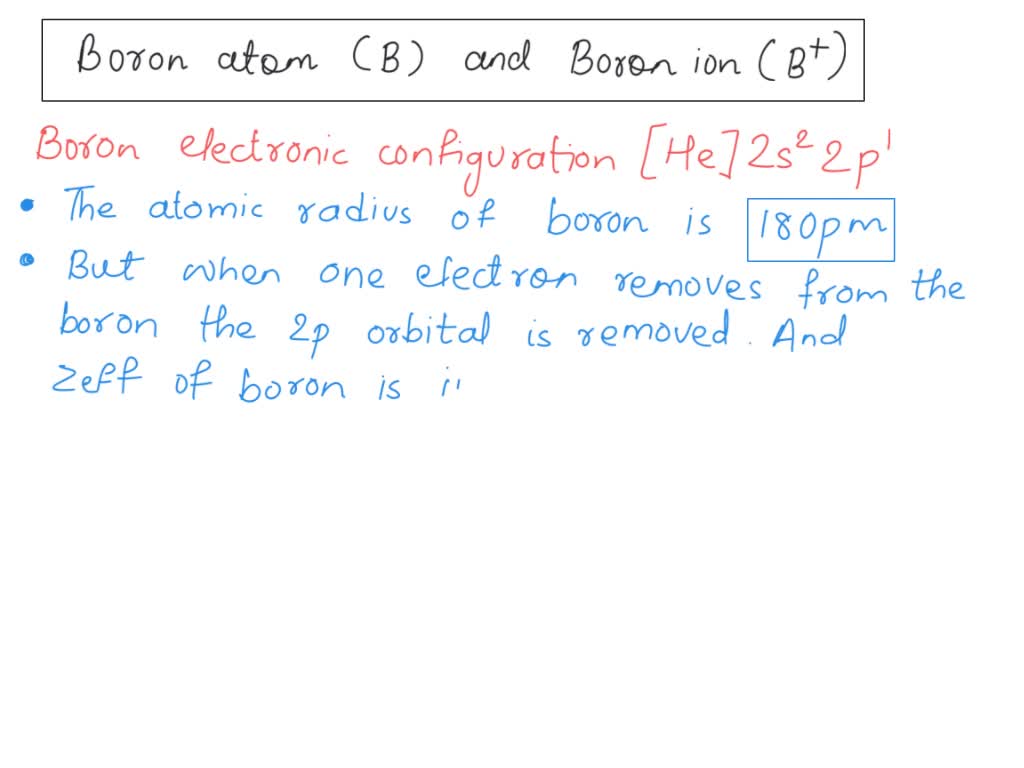 Boron atom (B) and Boron ion (B⁺)
Boron electronic configuration [He] 2s² 2p¹
• The atomic radius of boron is 180pm
• But when one electron removes from the
boron the 2p orbital is removed. And
Zeff of boron is